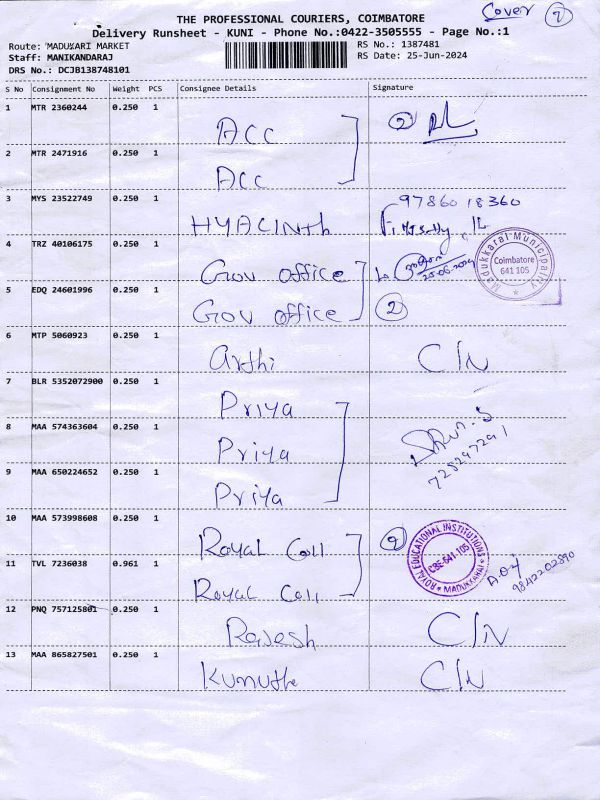 Cover 2
THE PROFESSIONAL COURIERS, COIMBATORE
Delivery Runsheet - KUNI - Phone No.:0422-3505555 - Page No.:1
Route: MADUKARI MARKET RS No.: 1387481
Staff: MANIKANDARAJ RS Date: 25-Jun-2024
DRS No.: DCJB138748101
S No Consignment No Weight PCS Consignee Details Signature
1 MTR 2360244 0.250 1 ACC 2
2 MTR 2471916 0.250 1 ACC
3 MYS 23522749 0.250 1 HYACINth 9786018360
4 TRZ 40106175 0.250 1 Gov office
Madukkarai Municipality Coimbatore 641 105
5 EDQ 24601996 0.250 1 Gov office 2
6 MTP 5060923 0.250 1 Arthi C/N
7 BLR 5352072900 0.250 1 Priya
8 MAA 574363604 0.250 1 Priya
9 MAA 650224652 0.250 1 Priya
10 MAA 573998608 0.250 1 Royal Coll 2
ROYAL EDUCATIONAL INSTITUTIONS CBE-641 105 MADUKKARAI
11 TVL 7236038 0.961 1 Royal Coll 9842202890
12 PNQ 757125801 0.250 1 Rajesh C/N
13 MAA 865827501 0.250 1 Kumuthe C/N